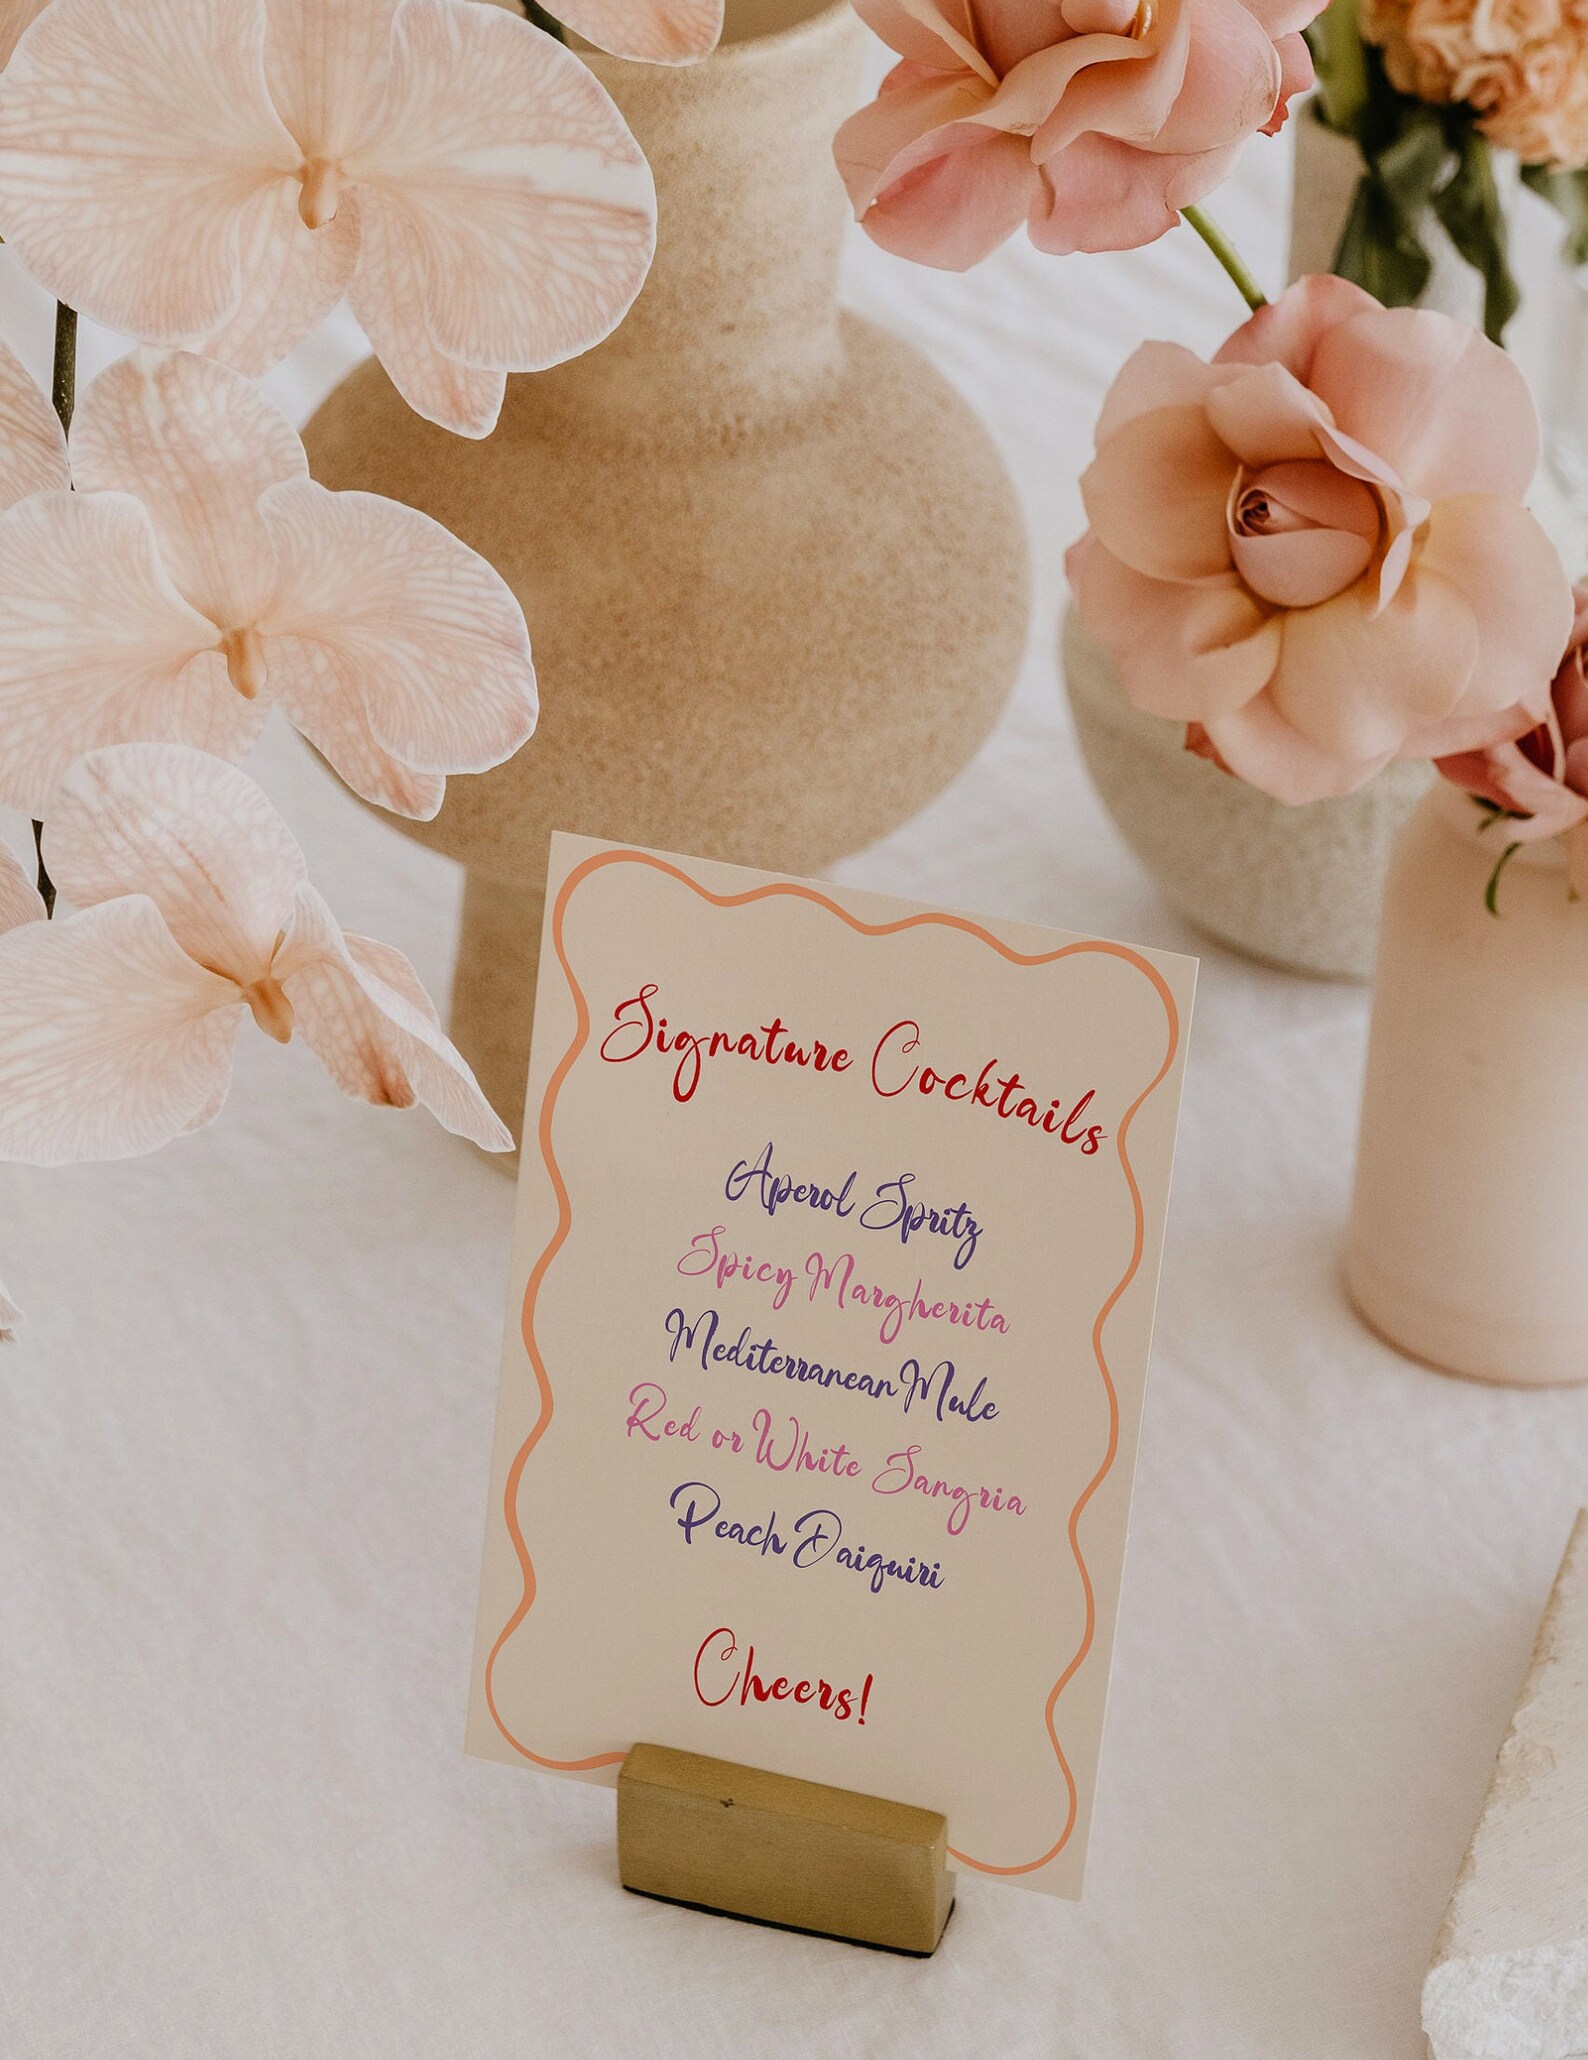 Signature Cocktails
Aperol Spritz
Spicy Margherita
Mediterranean Mule
Red or White Sangria
Peach Daiquiri
Cheers!